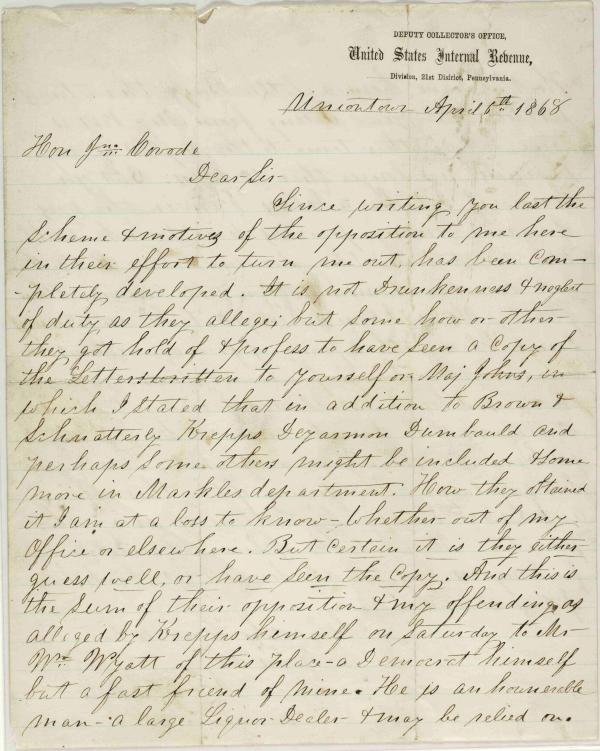 DEPUTY COLLECTOR'S OFFICE,
United States Internal Revenue,
Division, 21st District, Pennsylvania.
Uniontown April 6th 1868
Hon Jno Covode
Dear Sir
Since writing you last the
Scheme & motives of the opposition to me here
in their effort to turn me out, has been Com-
-pletely developed. It is not Drunkenness & neglect
of duty as they allege; but Some how or other
they got hold of & profess to have Seen a Copy of
the Letters written to yourself or Maj Johns, in
which I stated that in addition to Brown &
Schnatterly Krepps Deyarmon Dumbauld and
perhaps Some others might be included & Some
more in Markles department. How they obtained
it I am at a loss to know - Whether out of my
Office or elsewhere. But Certain it is they either
guess well, or have Seen the Copy. And this is
the Sum of their opposition & my offending, as
alleged by Krepps himself on Saturday to Mr
Wm Wyatt of this place - a Democrat himself
but a fast friend of mine. He is an honourable
man - a large Liquor Dealer & may be relied on.